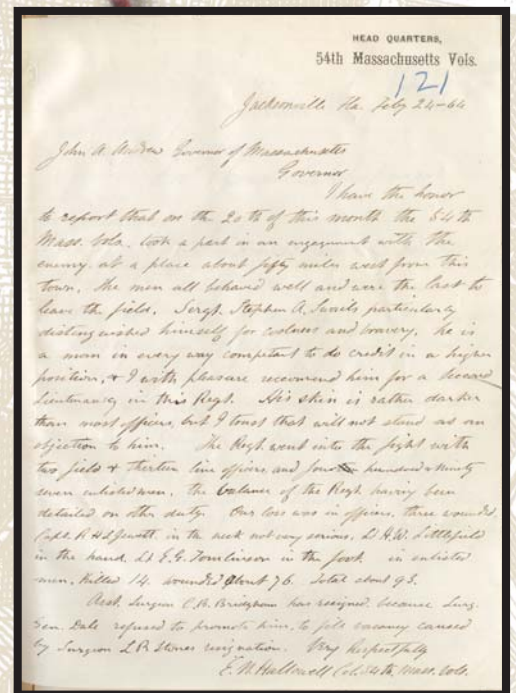 HEAD QUARTERS,
54th Massachusetts Vols.
121
Jacksonville Fla. Feby 24-64
John A. Andrew Governor of Massachusetts
Governor
I have the honor
to report that on the 20th of this month the 54th
Mass. Vols. took a part in an engagement with the
enemy at a place about fifty miles west from this
town, the men all behaved well and were the last to
leave the field, Sergt. Stephen A. Swails particularly
distinguished himself for coolness and bravery, he is
a man in every way competant to do credit in a higher
position, & I with pleasure recommend him for a Second
Lieutenancy in this Regt. His skin is rather darker
than most officers, but I trust that will not stand as an
objection to him. The Regt. went into the fight with
two field & thirteen line officers and four hundred & ninety
seven enlisted men, the balance of the Regt. having been
detailed on other duty. Our loss was in officers, three wounded,
Capt. R. H. L. Jewett, in the neck not very serious, Lt H. W. Littlefield
in the hand, Lt E. G. Tomlinson in the foot in enlisted
men, Killed 14. wounded about 76. total about 93.
Asst. Surgeon C. B. Bridgham has resigned because Surg.
Gen. Dale refused to promote him, to fill vacancy caused
by Surgeon L R Stones resignation. Very Respectfully
E. N. Hallowell Col. 54th Mass. Vols.